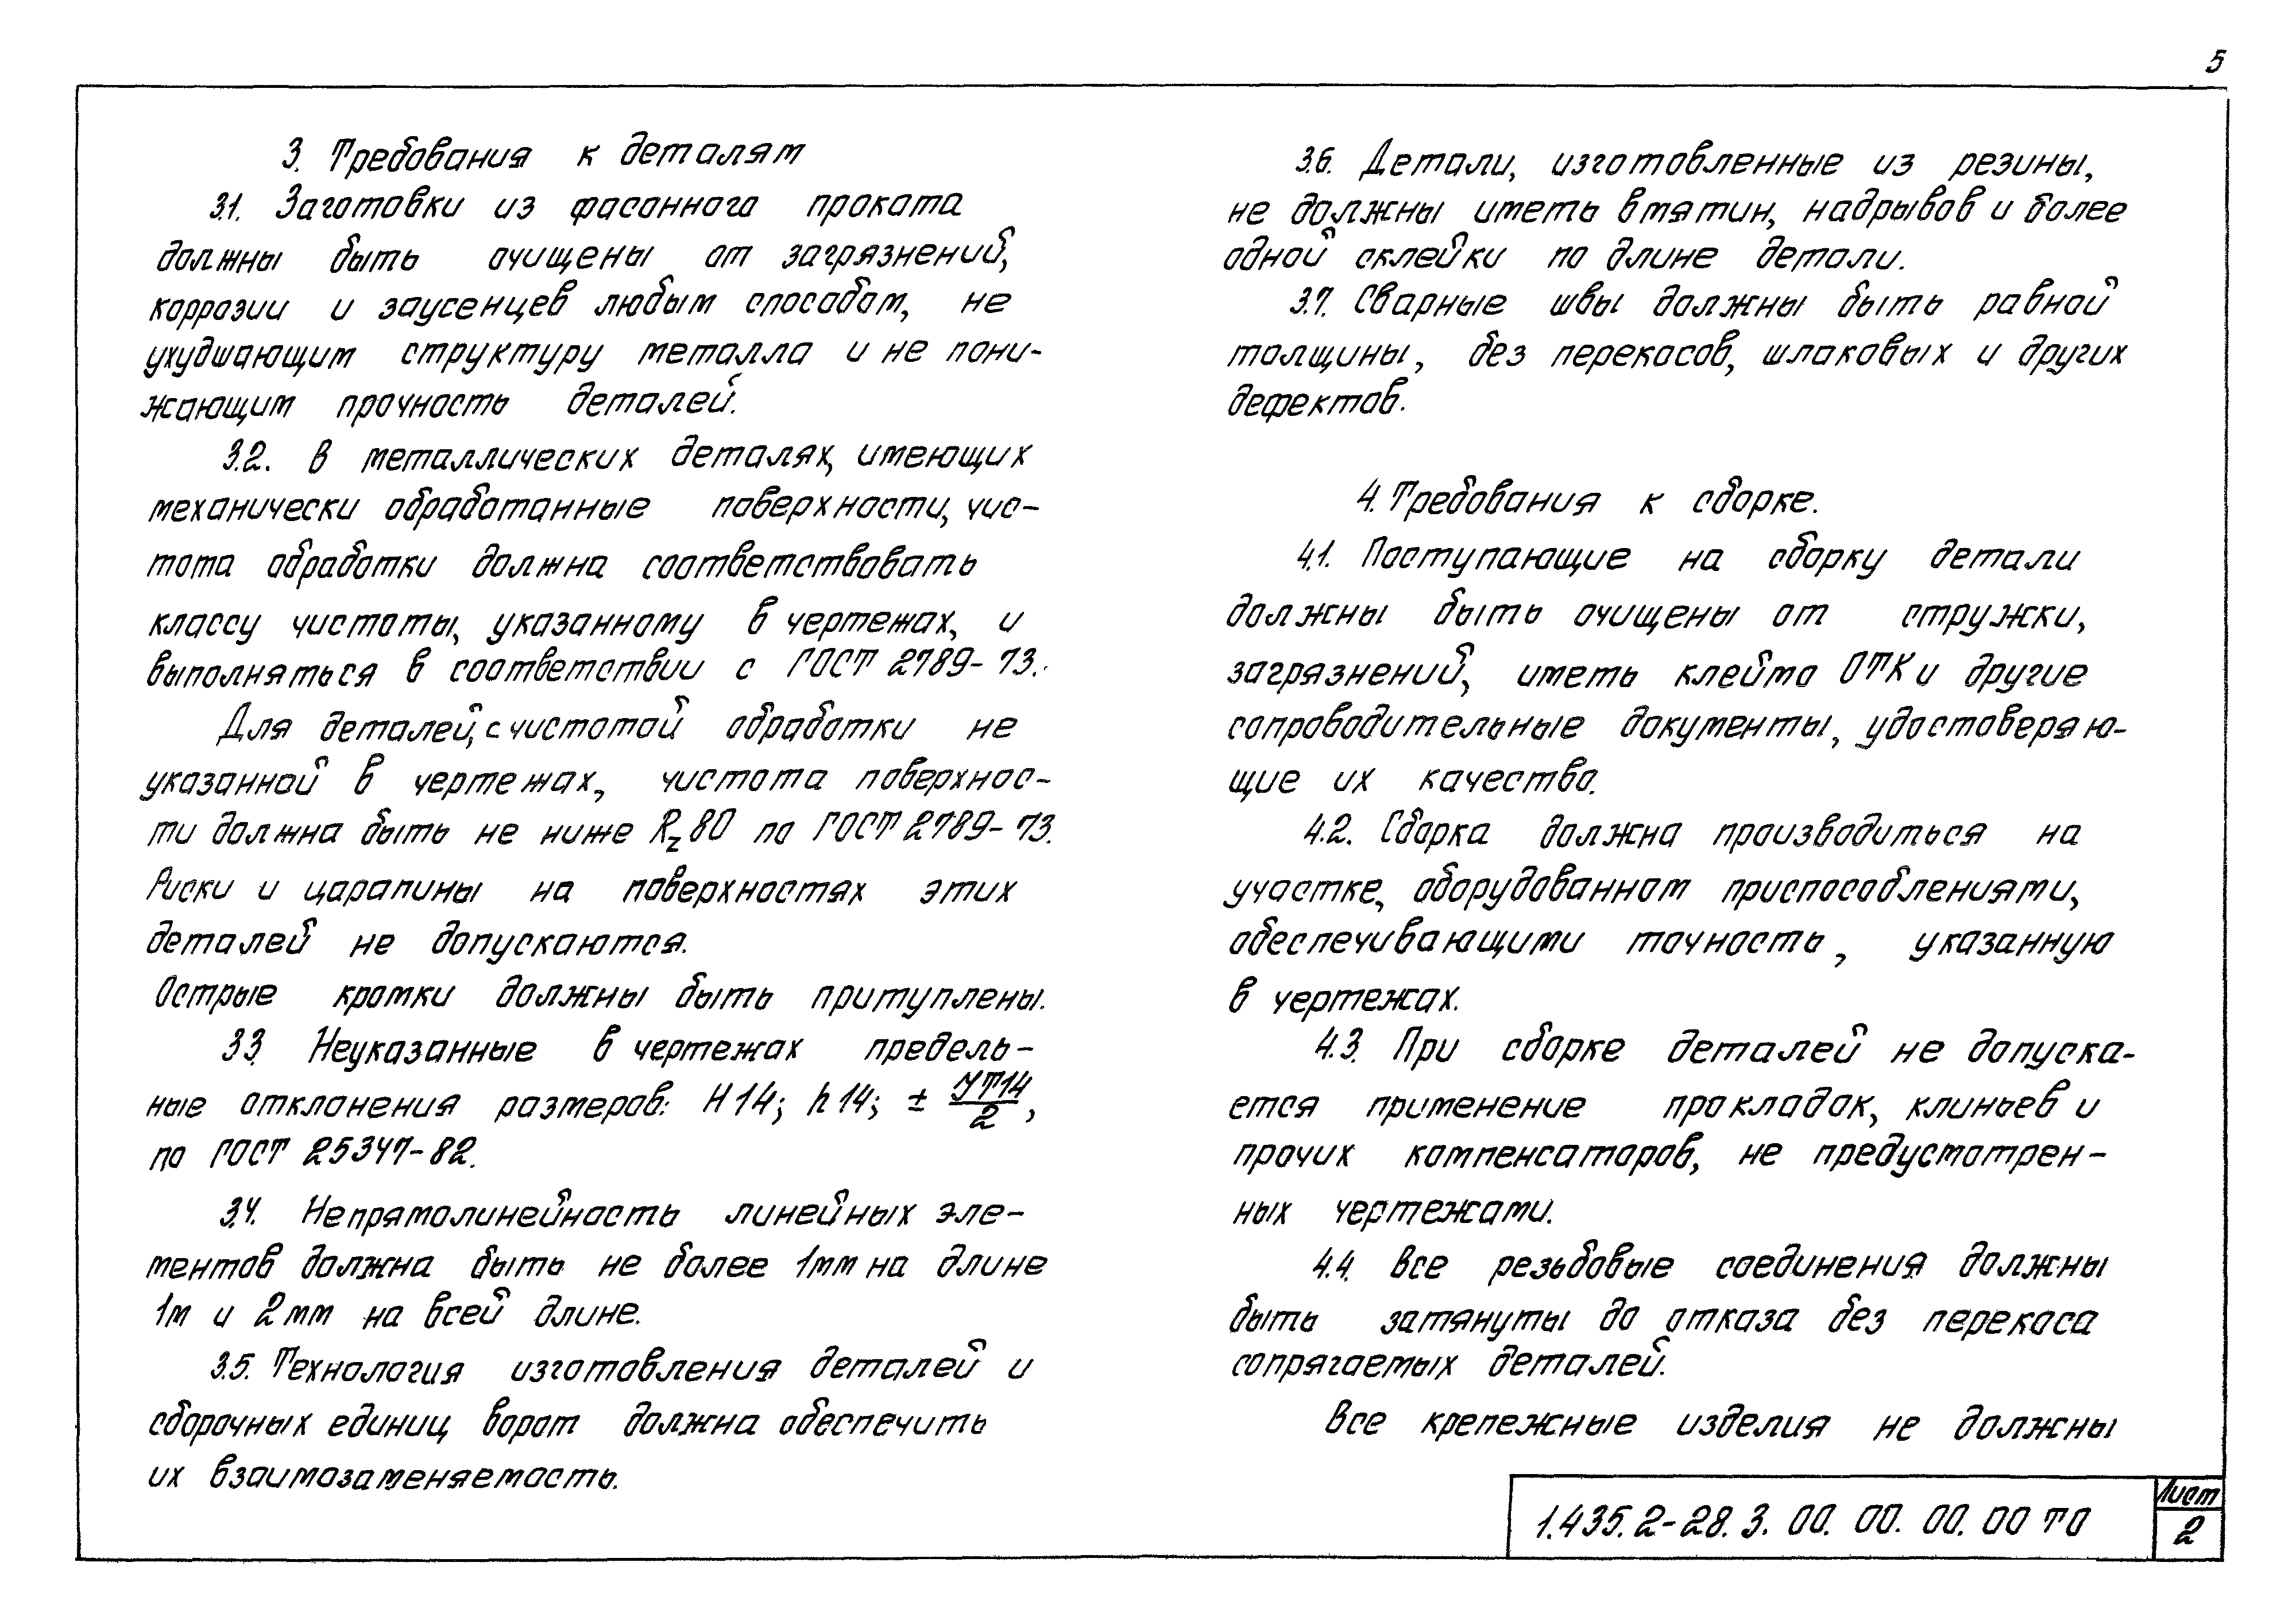 5
3. Требования к деталям
3.1. Заготовки из фасонного проката
должны быть очищены от загрязнений,
коррозии и заусенцев любым способом, не
ухудшающим структуру металла и не пони-
жающим прочность деталей.
3.2. В металлических деталях, имеющих
механически обработанные поверхности, чис-
тота обработки должна соответствовать
классу чистоты, указанному в чертежах, и
выполняться в соответствии с ГОСТ 2789-73.
Для деталей, с чистотой обработки не
указанной в чертежах, чистота поверхнос-
ти должна быть не ниже Rz 80 по ГОСТ 2789-73.
Риски и царапины на поверхностях этих
деталей не допускаются.
Острые кромки должны быть притуплены.
3.3. Неуказанные в чертежах предель-
ные отклонения размеров: H14; h14; ± JT14/2,
по ГОСТ 25347-82.
3.4. Непрямолинейность линейных эле-
ментов должна быть не более 1мм на длине
1м и 2мм на всей длине.
3.5. Технология изготовления деталей и
сборочных единиц ворот должна обеспечить
их взаимозаменяемость.
3.6. Детали, изготовленные из резины,
не должны иметь вмятин, надрывов и более
одной склейки по длине детали.
3.7. Сварные швы должны быть равной
толщины, без перекосов, шлаковых и других
дефектов.
4. Требования к сборке.
4.1. Поступающие на сборку детали
должны быть очищены от стружки,
загрязнений, иметь клеймо ОТК и другие
сопроводительные документы, удостоверяю-
щие их качество.
4.2. Сборка должна производиться на
участке, оборудованном приспособлениями,
обеспечивающими точность, указанную
в чертежах.
4.3. При сборке деталей не допуска-
ется применение прокладок, клиньев и
прочих компенсаторов, не предусмотрен-
ных чертежами.
4.4. Все резьбовые соединения должны
быть затянуты до отказа без перекоса
сопрягаемых деталей.
Все крепежные изделия не должны
1.435.2-28.3.00.00.00.00 ТО
Лист
2